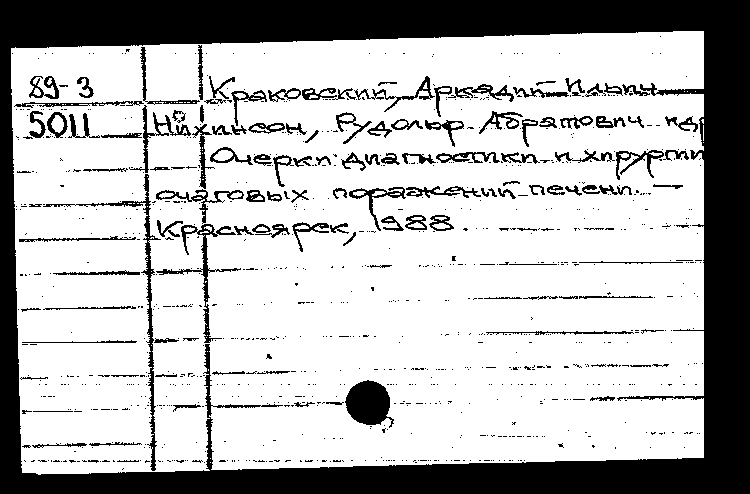 89-3 Краковский, Аркадий Ильич
5011 Нихинсон, Рудольф Абрамович и др
Очерки диагностики и хирургии
очаговых поражений печени. —
Красноярск, 1988.